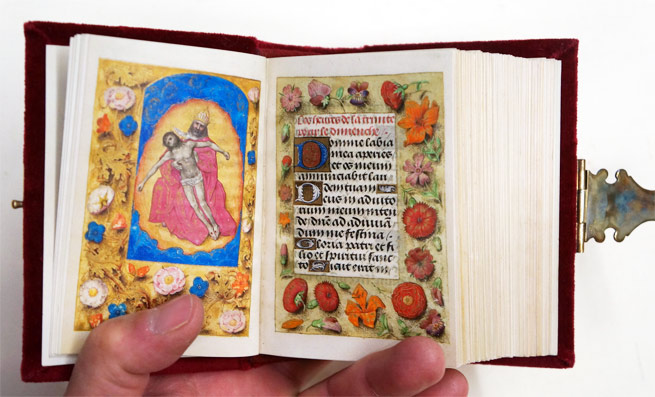 Les heures de la trinite
pour le dimenche.
Domine labia
mea aperies.
et os meum
annunciabit lau
dem tuam
Deus in adiuto
rium meum inten
de dne ad adiuuā
dum me festina
Gloria patri et fi
lio et spiritui sanc
to Sicut erat in